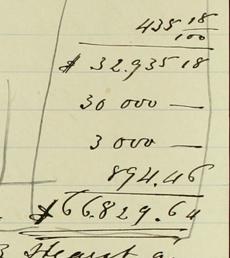 435 18/100
$ 32.935 18
30 000 —
3 000 —
894.46
$66.829.64